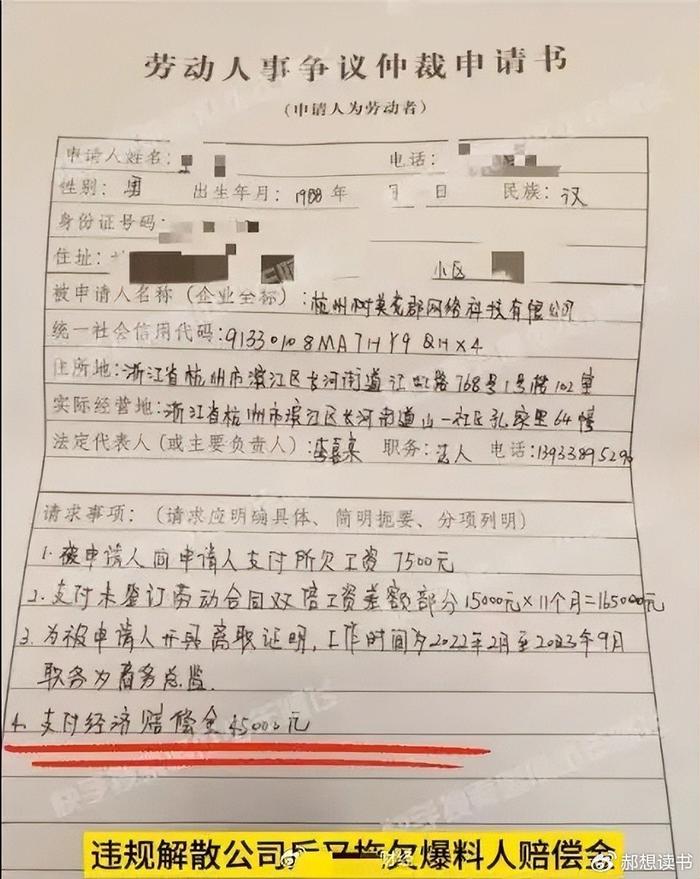 劳动人事争议仲裁申请书
(申请人为劳动者)
申请人姓名: 电话:
性别: 男 出生年月: 1988年 月 日 民族: 汉
身份证号码:
住址: 小区
被申请人名称(企业全标): 杭州树英克郡网络科技有限公司
统一社会信用代码: 91330108MA7HY9QHX4
住所地: 浙江省杭州市滨江区长河街道江虹路768号1号楼102室
实际经营地: 浙江省杭州市滨江区长河街道山一社区孔家里64幢
法定代表人(或主要负责人): 李 职务: 法人 电话: 1393389529
请求事项: (请求应明确具体、简明扼要、分项列明)
1. 被申请人向申请人支付所欠工资 7500元
2. 支付未签订劳动合同双倍工资差额部分 15000元×11个月=165000元
3. 为被申请人开具离职证明,工作时间为2022年2月至2023年9月
职务为商务总监.
4. 支付经济赔偿金 45000元
违规解散公司后又拖欠爆料人赔偿金
财经
郝想读书